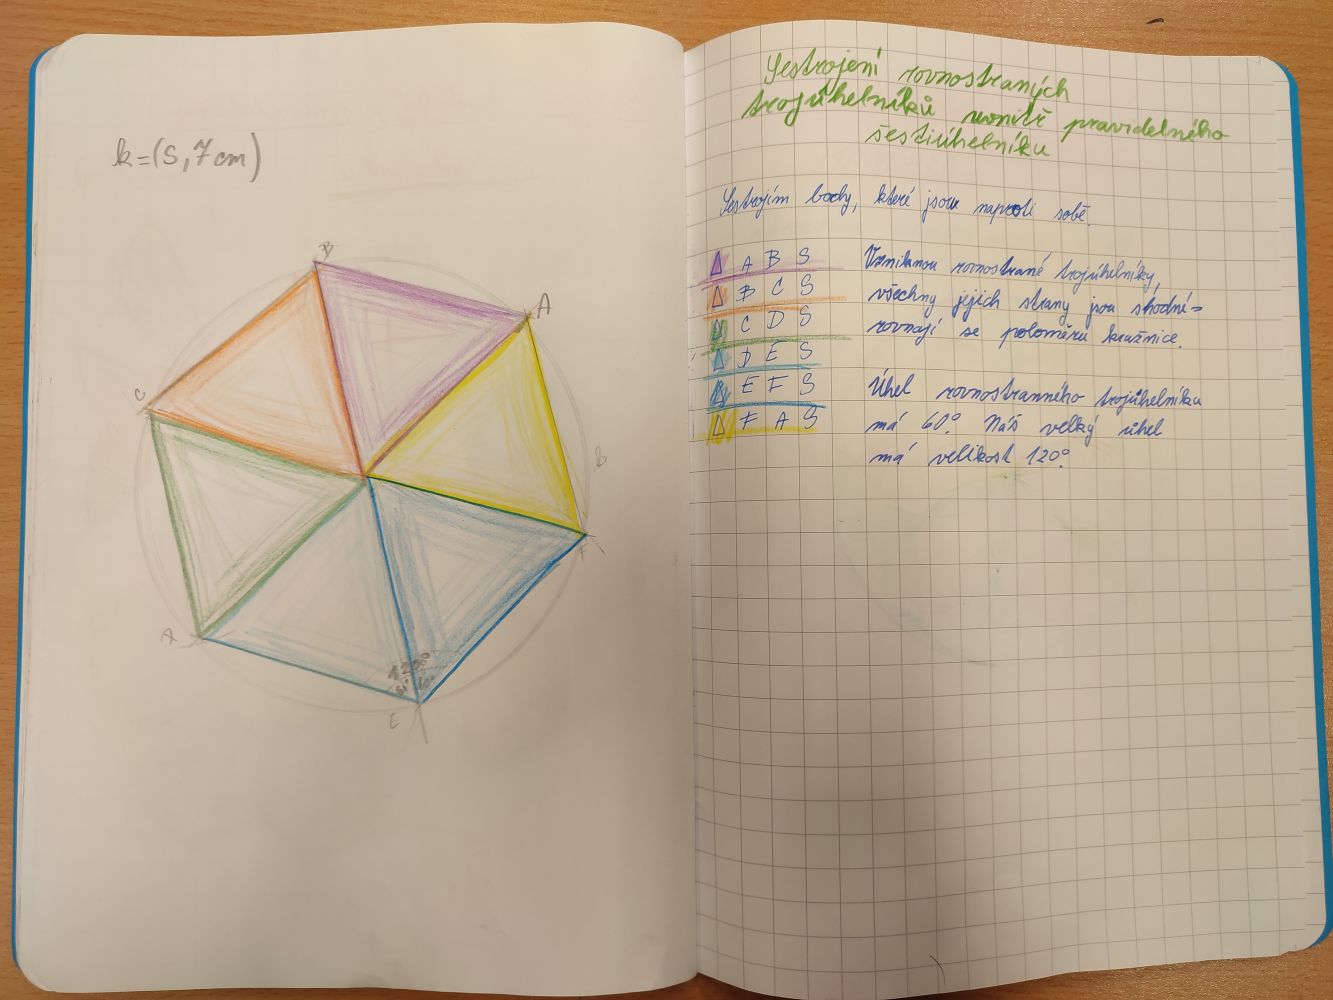 k=(S,7cm)
B
A
C
b
F
D
120°
60° 60°
E
Sestrojení rovnostraných
trojúhelníků uvnitř pravidelného
šestiúhelníku
Sestrojím body, které jsou naproti sobě.
△ A B S
△ B C S
△ C D S
△ D E S
△ E F S
△ F A S
Vzniknou rovnostrané trojúhelníky,
všechny jejich strany jsou shodné =
rovnají se poloměru kružnice.
Úhel rovnostranného trojúhelníku
má 60°. Náš velký úhel
má velikost 120°.